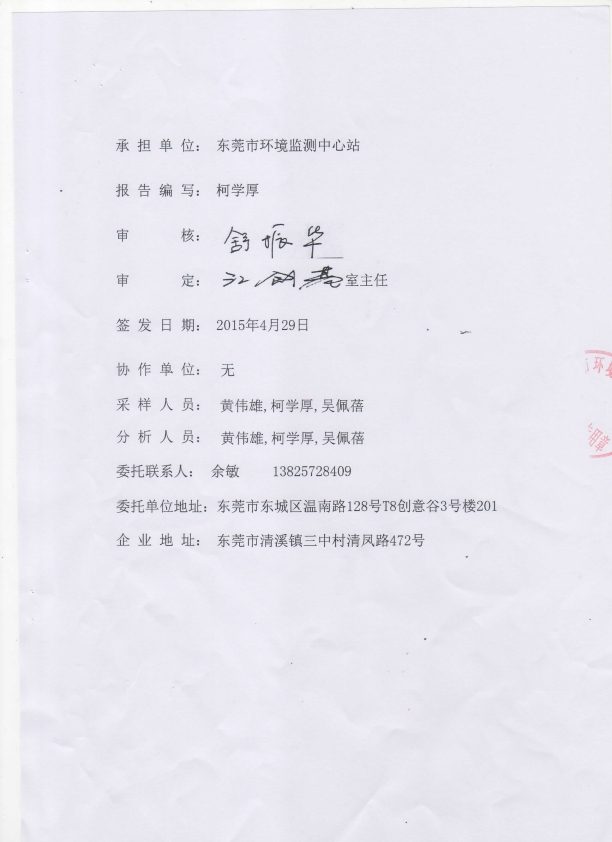 承担单位： 东莞市环境监测中心站
报告编写： 柯学厚
审核： 舒振华
审定： 江 室主任
签发日期： 2015年4月29日
协作单位： 无
采样人员： 黄伟雄,柯学厚,吴佩蓓
分析人员： 黄伟雄,柯学厚,吴佩蓓
委托联系人： 余敏 13825728409
委托单位地址：东莞市东城区温南路128号T8创意谷3号楼201
企业地址： 东莞市清溪镇三中村清凤路472号
环
用章